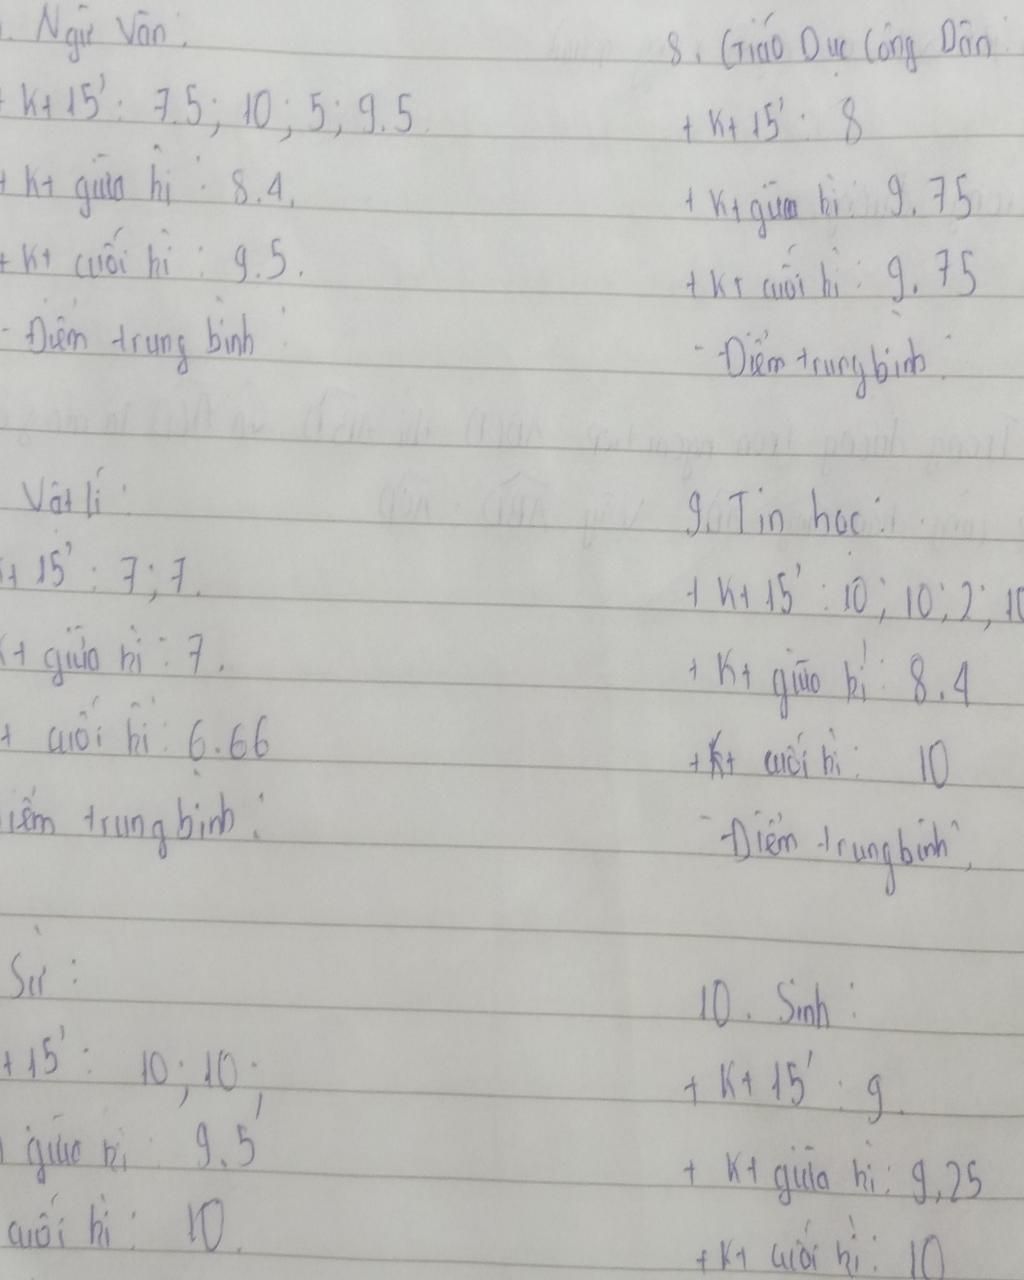 . Ngữ Văn:
+ Kt 15' : 7.5; 10; 5; 9.5
+ Kt giữa kì : 8.4.
+ Kt cuối kì : 9.5.
- Điểm trung bình :
Vật lí :
+ 15' : 7; 7.
Kt giữa kì : 7.
+ cuối kì : 6.66
iểm trung bình :
Sử :
+ 15' : 10; 10;
giữa kì : 9.5
cuối kì : 10.
8. Giáo Dục Công Dân
+ Kt 15' : 8
+ Kt giữa kì : 9.75
+ Kt cuối kì : 9.75
- Điểm trung bình :
9. Tin học :
+ Kt 15' : 10; 10; 2; 10
+ Kt giữa kì : 8.4
+ Kt cuối kì : 10
- Điểm trung bình :
10. Sinh :
+ Kt 15' : 9.
+ Kt giữa kì : 9,25
+ Kt cuối kì : 10